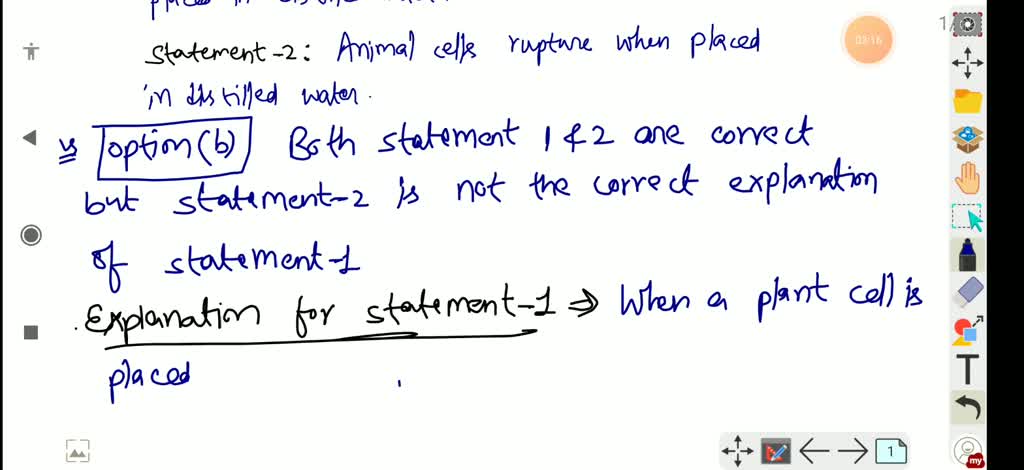 placed in
statement-2: Animal cells rupture when placed
in distilled water.
option(b) Both statement 1 & 2 are correct
but statement-2 is not the correct explanation
of statement-1
Explanation for statement-1 ⇒ When a plant cell is
placed
03:16
1
T
my